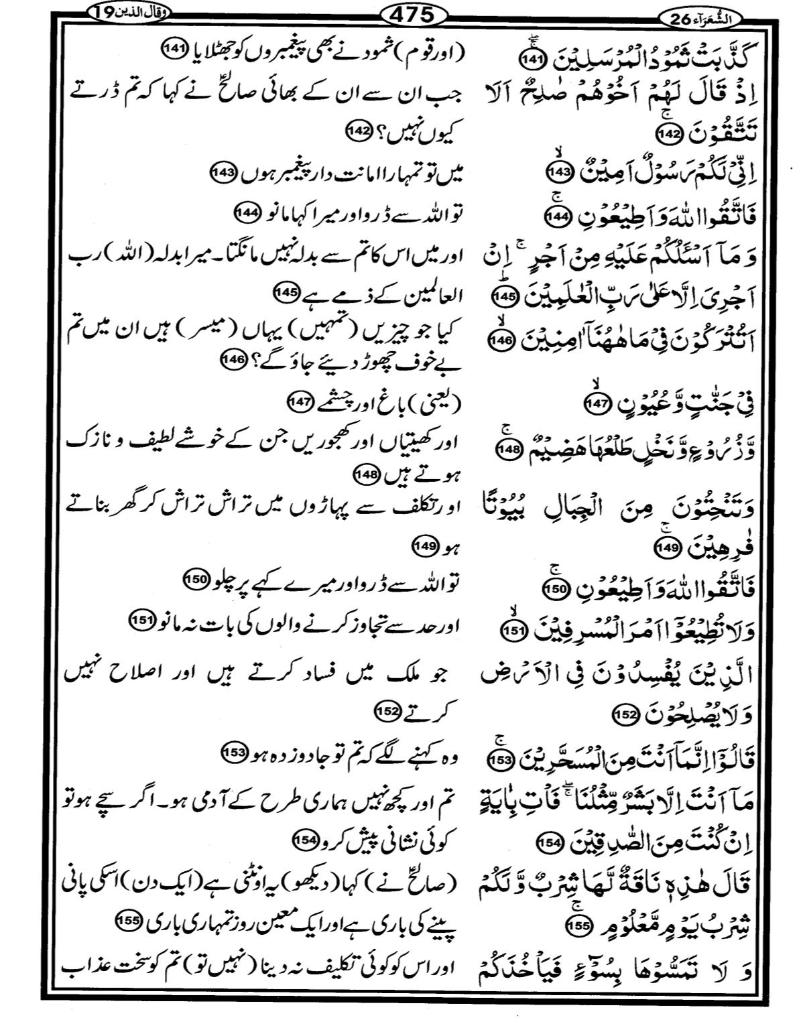 الشُّعَرَآء 26 475 وقال الذين 19
كَذَّبَتْ ثَمُوْدُ الْمُرْسَلِيْنَ 141
(اور قوم) ثمود نے بھی پیغمبروں کو جھٹلایا 141
اِذْ قَالَ لَهُمْ اَخُوْهُمْ صٰلِحٌ اَلَا
تَتَّقُوْنَ 142
جب ان سے ان کے بھائی صالحؑ نے کہا کہ تم ڈرتے
کیوں نہیں؟ 142
اِنِّيْ لَكُمْ رَسُوْلٌ اَمِيْنٌ 143
میں تو تمہارا امانت دار پیغمبر ہوں 143
فَاتَّقُوا اللّٰهَ وَ اَطِيْعُوْنِ 144
تو اللہ سے ڈرو اور میرا کہا مانو 144
وَ مَاۤ اَسْـَٔلُكُمْ عَلَيْهِ مِنْ اَجْرٍ ۚ اِنْ
اَجْرِيَ اِلَّا عَلٰى رَبِّ الْعٰلَمِيْنَ 145
اور میں اس کا تم سے بدلہ نہیں مانگتا۔ میرا بدلہ (اللہ) رب
العالمین کے ذمے ہے 145
اَتُتْرَكُوْنَ فِيْ مَا هٰهُنَاۤ اٰمِنِيْنَ 146
کیا جو چیزیں (تمہیں) یہاں (میسر) ہیں ان میں تم
بے خوف چھوڑ دیئے جاؤ گے؟ 146
فِيْ جَنّٰتٍ وَّ عُيُوْنٍ 147
(یعنی) باغ اور چشمے 147
وَّ زُرُوْعٍ وَّ نَخْلٍ طَلْعُهَا هَضِيْمٌ 148
اور کھیتیاں اور کھجوریں جن کے خوشے لطیف و نازک
ہوتے ہیں 148
وَ تَنْحِتُوْنَ مِنَ الْجِبَالِ بُيُوْتًا
فٰرِهِيْنَ 149
اور تکلف سے پہاڑوں میں تراش تراش کر گھر بناتے
ہو 149
فَاتَّقُوا اللّٰهَ وَ اَطِيْعُوْنِ 150
تو اللہ سے ڈرو اور میرے کہے پر چلو 150
وَ لَا تُطِيْعُوْۤا اَمْرَ الْمُسْرِفِيْنَ 151
اور حد سے تجاوز کرنے والوں کی بات نہ مانو 151
الَّذِيْنَ يُفْسِدُوْنَ فِي الْاَرْضِ
وَ لَا يُصْلِحُوْنَ 152
جو ملک میں فساد کرتے ہیں اور اصلاح نہیں
کرتے 152
قَالُوْۤا اِنَّمَاۤ اَنْتَ مِنَ الْمُسَحَّرِيْنَ 153
وہ کہنے لگے کہ تم تو جادو زدہ ہو 153
مَاۤ اَنْتَ اِلَّا بَشَرٌ مِّثْلُنَا ۚ فَاْتِ بِاٰيَةٍ
اِنْ كُنْتَ مِنَ الصّٰدِقِيْنَ 154
تم اور کچھ نہیں ہماری طرح کے آدمی ہو۔ اگر سچے ہو تو
کوئی نشانی پیش کرو 154
قَالَ هٰذِهٖ نَاقَةٌ لَّهَا شِرْبٌ وَّ لَكُمْ
شِرْبُ يَوْمٍ مَّعْلُوْمٍ 155
(صالحؑ نے) کہا (دیکھو) یہ اونٹنی ہے (ایک دن) اسکی پانی
پینے کی باری ہے اور ایک معین روز تمہاری باری 155
وَ لَا تَمَسُّوْهَا بِسُوْٓءٍ فَيَاْخُذَكُمْ
اور اس کو کوئی تکلیف نہ دینا (نہیں تو) تم کو سخت عذاب